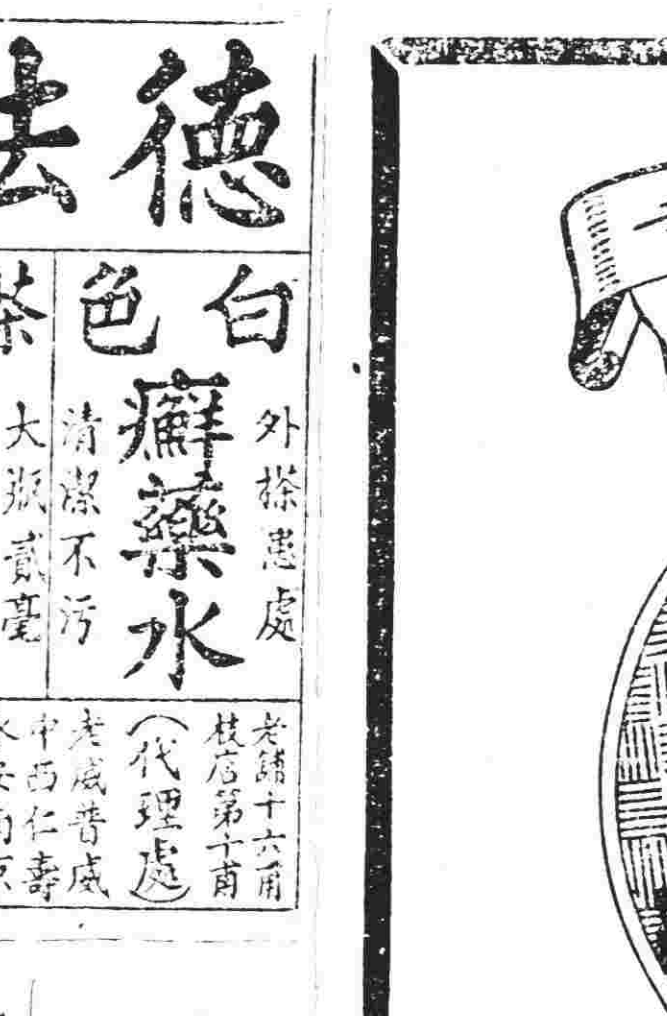 德法
白色
外搽患處
癬藥水
清潔不污
茶
大瓶貳毫
老舖十六甫
枝店第十甫
(代理處)
老威普威
中西仁壽